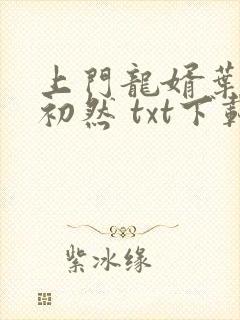 上門龍婿葉
初然 txt下載
紫冰缘